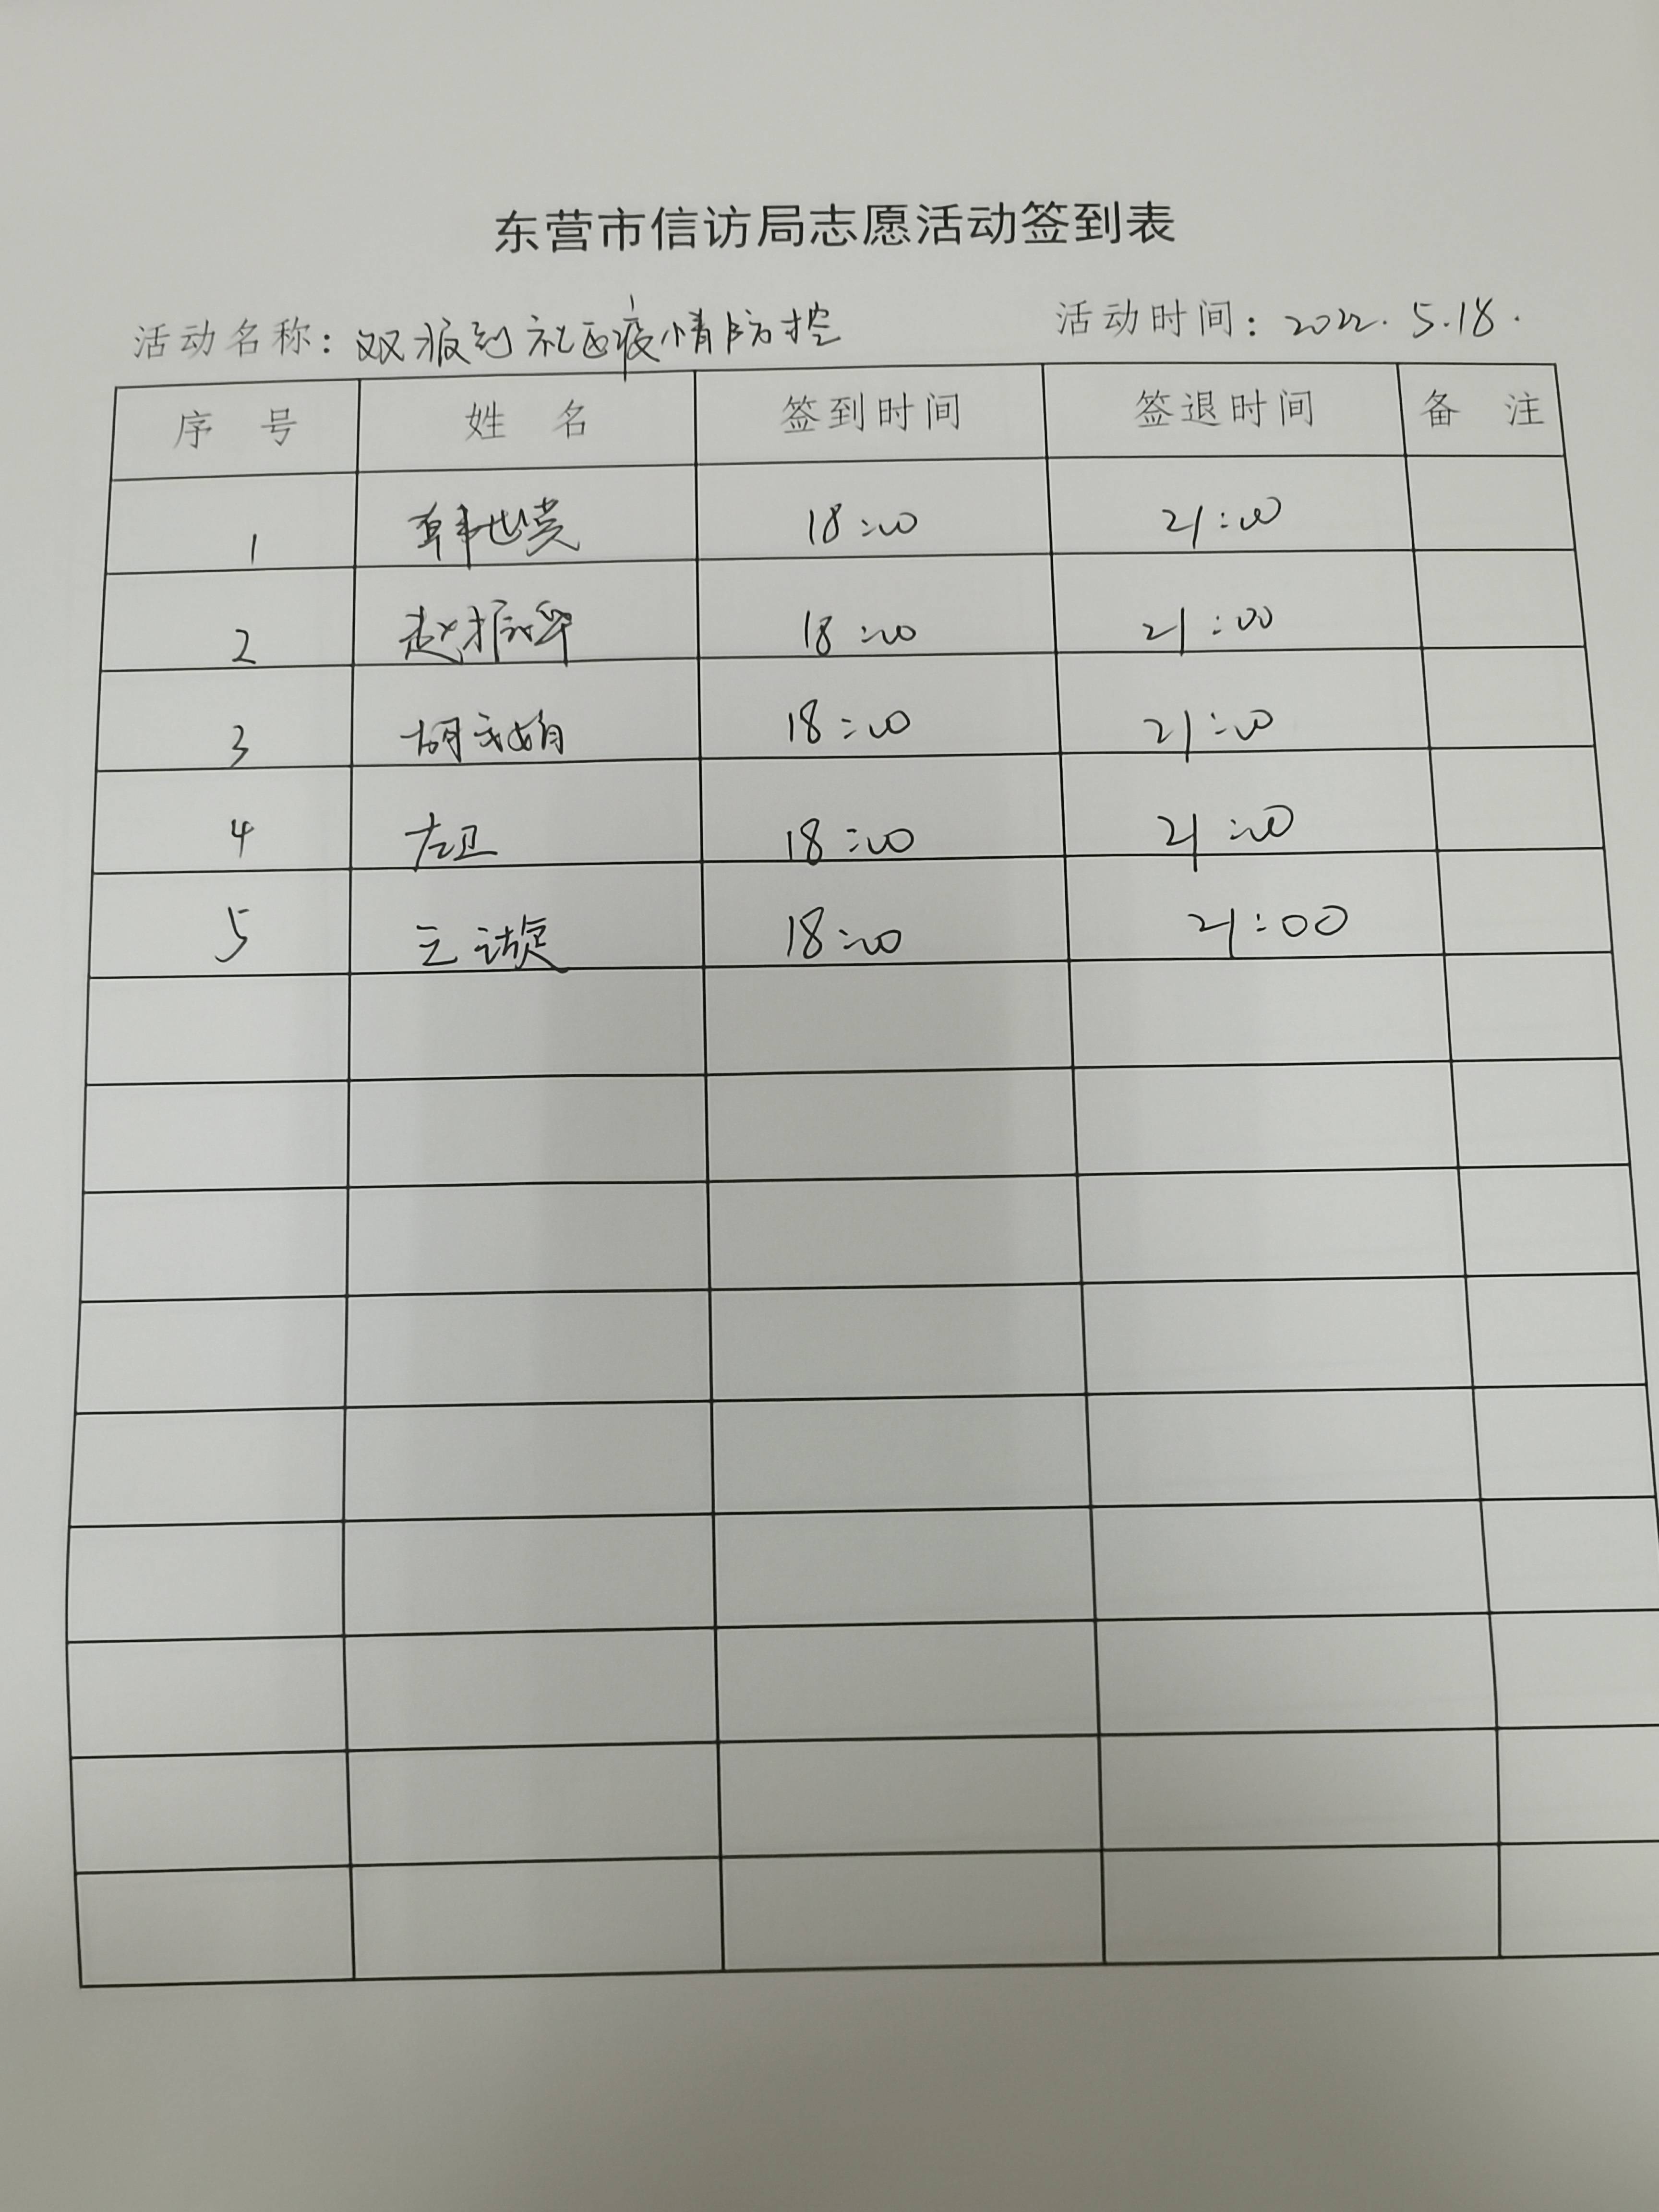 东营市信访局志愿活动签到表
活动名称：双报到社区疫情防控 活动时间：2022.5.18.
序 号 姓 名 签到时间 签退时间 备 注
1 韩世党 18:00 21:00
2 赵振华 18:00 21:00
3 胡 娟 18:00 21:00
4 左卫 18:00 21:00
5 18:00 21:00